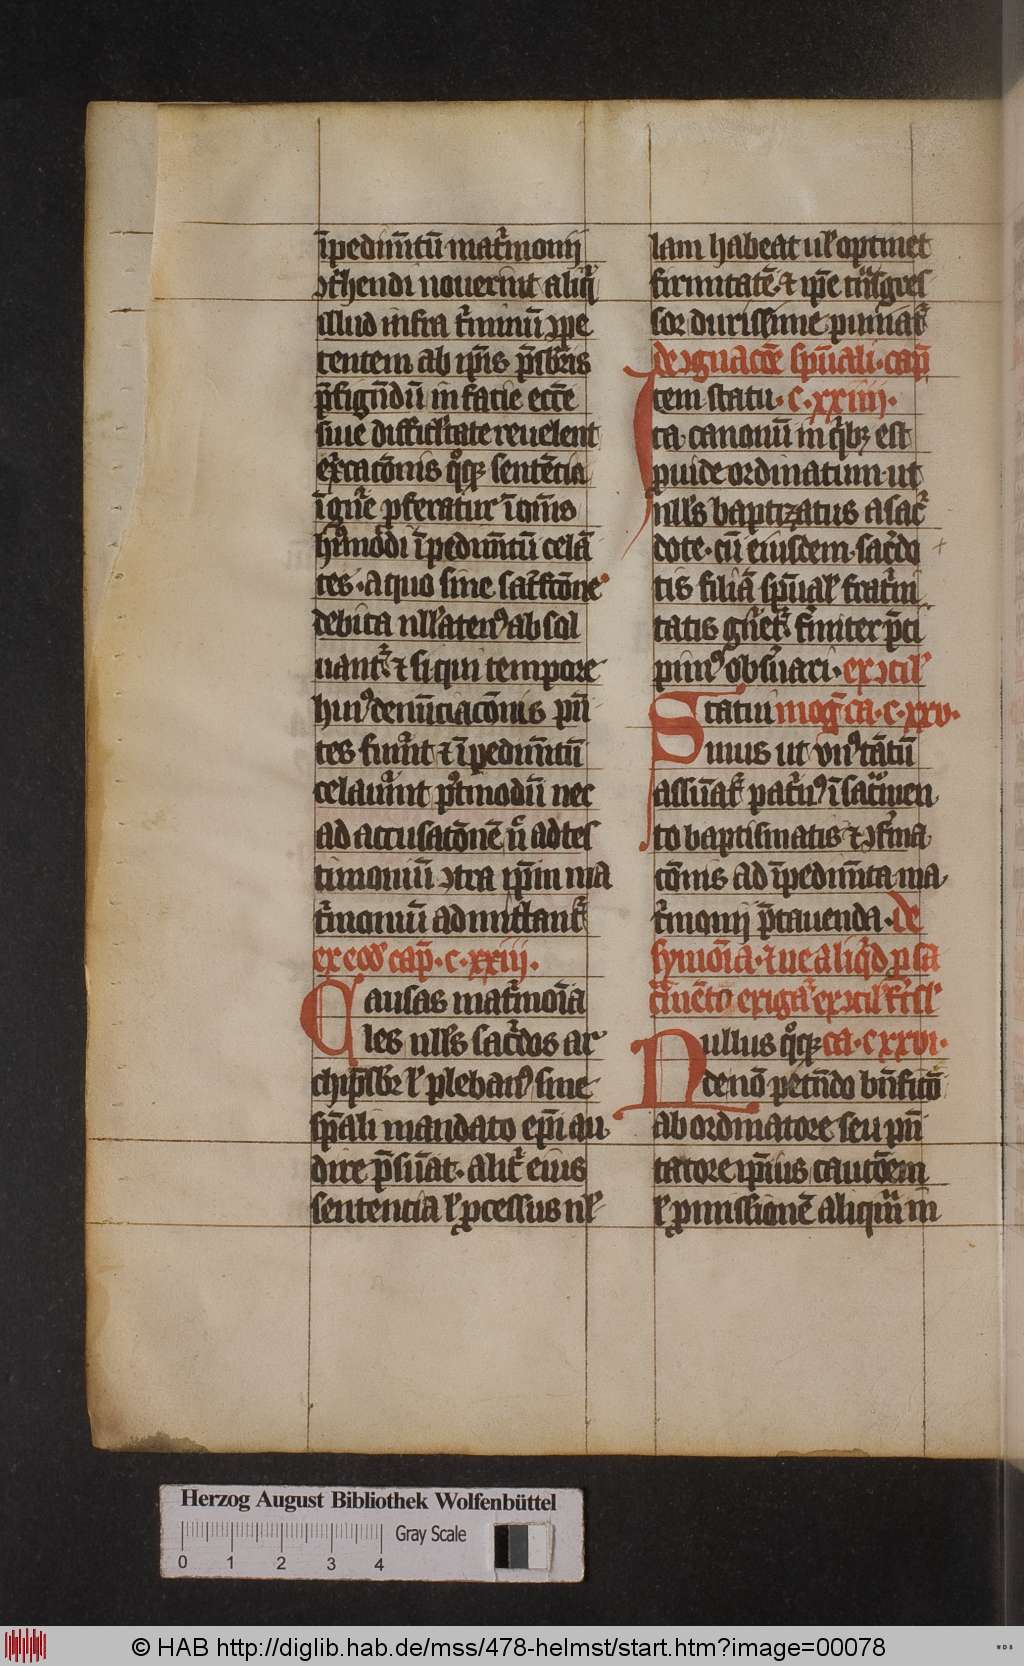 īpedim̄tū mat̄monij
ɔt̄hendi nouerint aliq̄
illud infra t̄minū ɔpe
tentem ab ip̄is p̄sbr̄is
p̄figēdū in facie ecc̄e
siue difficl̄tate reuelent
exc̄acōnis qͦqꝫ sentēcia
īqūe ꝓferatur ī om̄s
hꝰmōdi īpedim̄tū celā
tes · a quo sine satf̄cōne
debita nll̓atenꝰ absol
uant᷑ ⁊ si qui tempore
huiꝰ denūciacōnis pn̄
tes fuīnt ⁊ īpedim̄tū
celauīnt pꝰtmodū nec
ad accusacōnē ul̓ ad tes
timoniū ɔtra ip̄m ma
t̄moniū admittant᷑
ex eod̓ cap̄ · c · xxiij ·
Causas mat̄mōia
les nll̓s sac̄dos ar
chip̄sbr̄ l̓ plebanꝰ sine
sp̄ali mandato ep̄i au
dire p̄sūat · alit̄ eius
sentencia l̓ ꝓcessus nl̓
lam habeat ul̓ optinet
firmitatē · ⁊ ip̄e tn̄sgres
sor durissime puniat᷑
de ɔgnacōe sp̄uali · cap̄
Item statu · c · xxiiii ·
ta canonū in qͥbꝫ est
ꝓuide ordinatum · ut
nll̓s baptizatus a sac̄
dote · cū eiusdem · sac̄do
tis filiā sp̄ual̓ frat̄ni
tatis
pimꝰ obs̄uari · ex ɔcil̓
Statui moḡ ca · c · xxv ·
mus ut
assūat᷑ pat̄nꝰ ī sac̄men
to baptismatis ⁊ ɔf̄ma
cōnis ad īpedim̄ta ma
t̄monij p̄cauenda · de
symōia · ⁊ ne aliqͥd ꝓ sa
c̄mēto exigat᷑ ex ɔcil̓
Nullus qͦqꝫ ca · c xxvi ·
de nō petēdo bn̄ficō
ab ordinatore seu pn̄
tatore ip̄ius cautōem
l̓ ꝓmissionē aliquā in
Herzog August Bibliothek Wolfenbüttel
Gray Scale
0 1 2 3 4
© HAB http://diglib.hab.de/mss/478-helmst/start.htm?image=00078